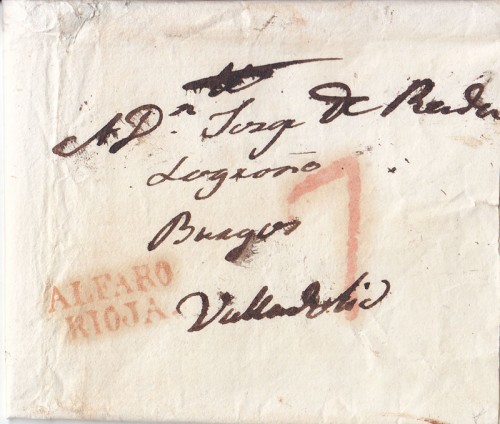 A Dn Jorge de Rada
Logroño
Burgos
7
ALFARO
RIOJA
Valladolid